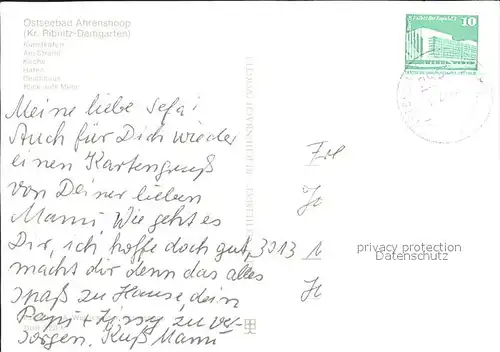 Ostseebad Ahrenshoop
(Kr. Ribnitz-Damgarten)
Kunstkaten
Am Strand
Kirche
Hafen
Blick aufs Meer
10
Meine liebe Sefa!
Auch für Dich wieder
einen Kartengruß
von Deiner lieben
Mami. Wie geht es
Dir, ich hoffe doch gut,
macht dir denn das alles
spaß zu Hause, dein
Papi + Sissy zu ver-
sorgen. Kuß Mami
3013
privacy protection
Datenschutz